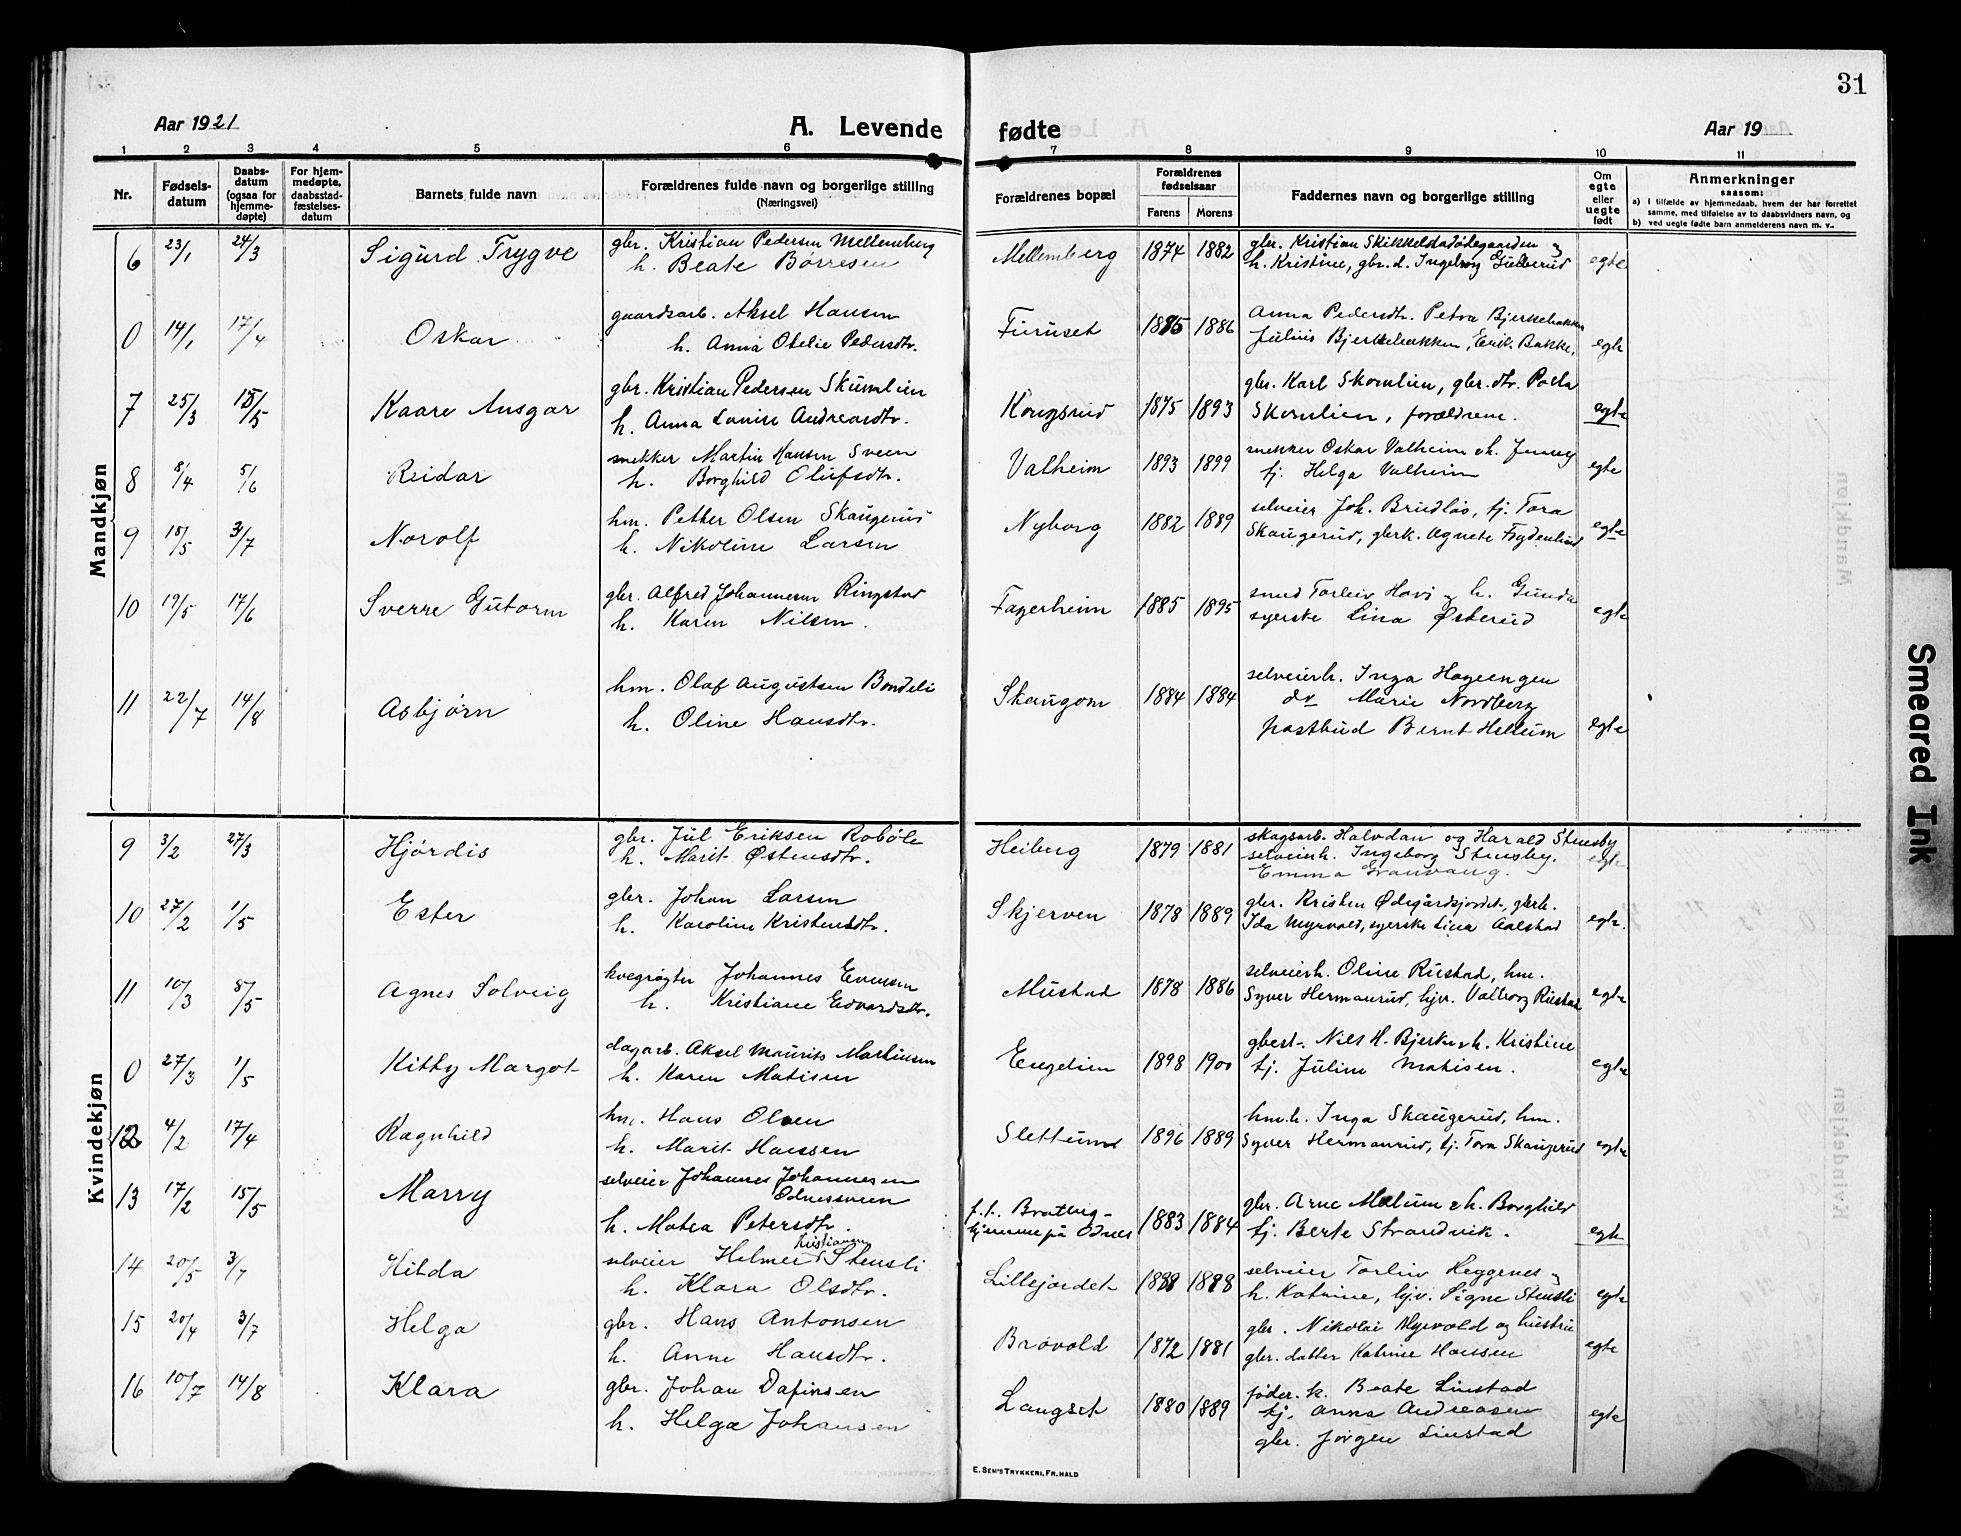 31
Aar 1921
A. Levende
fødte
Aar 19
1 2 3 4 5 6 7 8 9 10 11
Nr.
Fødsels-
datum
Daabs-
datum
(ogsaa for
hjemme-
døpte)
For hjem-
medøpte,
daabsstad-
fæstelses-
datum
Barnets fulde navn
Forældrenes fulde navn og borgerlige stilling
(Næringsvei)
Forældrenes bopæl
Forældrenes
fødselsaar
Farens Morens
Faddernes navn og borgerlige stilling
Om
egte
eller
uegte
født
Anmerkninger
saasom:
a) i tilfælde av hjemmedaab, hvem der har forrettet
samme, med tilføielse av to daabsvidners navn, og
b) ved uegte fødte barn anmelderens navn m. v..
Mandkjøn
6 23/1 24/3 Sigurd Trygve gbr. Kristian Pedersen Mellemberg
h. Beate Børresen
Mellemberg 1874 1882 gbr. Kristian Skikkelstadødegaarden og
h. Kristine, gbr. d. Ingeborg Gulberud egte
0 14/1 17/4 Oskar gaardsarb. Aksel Hansen
h. Anna Otelie Pedersdtr.
Furuset 1885 1886 Anna Pedersdtr. Petra Bjerkebakken
Julius Bjerkebakken, Erik Bakke, egte
7 25/3 15/5 Kaare Ansgar gbr. Kristian Pedersen Skumlien
h. Anna Lovise Andreasdtr.
Kongsrud 1875 1893 gbr. Karl Skomlien, gbr. dtr. Paula
Skumlien, forældrene. egte
8 8/4 5/6 Reidar snekker Martin Hansen Sveen
h. Borghild Olufsdtr.
Valheim 1893 1899 snekker Oskar Valheim & h. Jenny
tj. Helga Valheim egte
9 18/5 3/7 Norolf hm. Petter Olsen Skaugerud
h. Nikoline Larsen
Nyborg 1882 1889 selveier Joh. Brudlós, tj. Tora
Skaugerud, gbrk. Agnete Frydenlund egte
10 19/5 17/6 Sverre Gutorm gbr. Alfred Johannesen Ringstad
h. Karen Nilsen.
Fagerheim 1885 1895 smed Torleiv Hovi og h. Gunda
syerske Lina Østerud egte
11 22/7 14/8 Asbjørn hm. Olaf Augustsen Bondeli
h. Oline Hansdtr.
Skaugom 1884 1884 selveierh. Inga Hageengen
do Marie Nordberg
postbud Bernt Hellum egte
Kvindekjøn
9 3/2 27/3 Hjørdis gbr. Jul Eriksen Robøle
h. Marit Østensdtr.
Heiberg 1879 1881 skogsarb. Halvdan og Harald Stensby
selveierh. Ingeborg Stensby.
Emma Granvang. egte
10 27/2 1/5 Ester gbr. Johan Larsen
h. Karoline Kristensdtr.
Skjerven 1878 1889 gbr. Kristen Ødegårdsjordet, gbrh.
Ida Myrvold, syerske Lina Aalstad egte.
11 10/3 8/5 Agnes Solveig kvegrøgter Johannes Evensen
h. Kristiane Edvardsdtr.
Mustad 1878 1886 selveierh. Oline Rustad, hm.
Syver Hermanrud, hjv. Valborg Rustad egte
0 27/3 1/5 Kitty Margot dagarb. Aksel Maurits Martinsen
h. Karen Matisen
Engelien 1898 1900 gbest. Nils H. Bjerke & h. Kristine
tj. Juline Matisen. egte
12 4/2 17/4 Ragnhild hm. Hans Olsen
h. Marit Hanssen
Slettum 1896 1889 hm.h. Inga Skaugerud, hm.
Syver Hermanrud, tj. Tora Skaugerud egte
13 17/2 15/5 Marry selveier Johannes Johannesen
Odnessveen
h. Matea Petersdtr.
f.t. Bratberg-
hjemme på Odnes 1883 1884 gbr. Arne Malum & h. Borghild
tj. Berte Strandvik. egte
14 20/5 3/7 Hilda selveier Helmer Kristiansen Stensli
h. Klara Olsdtr.
Lillejordet 1888 1888 selveier Torleiv Heggenes og
h. Katrine, hjv. Signe Stensli egte
15 20/4 3/7 Helga gbr. Hans Antonsen
h. Anne Hansdtr.
Brovold 1872 1881 gbr. Nikolai Myrvold og hustru
gbr. datter Katrine Hanssen egte
16 10/7 14/8 Klara gbr. Johan Dafinsen
h. Helga Johansen
Langset 1880 1889 føder. k. Beate Linstad
tj. Anna Andreasen
gbr. Jørgen Linstad egte
E. Sem's Trykkeri, Fr.hald
Smeared Ink